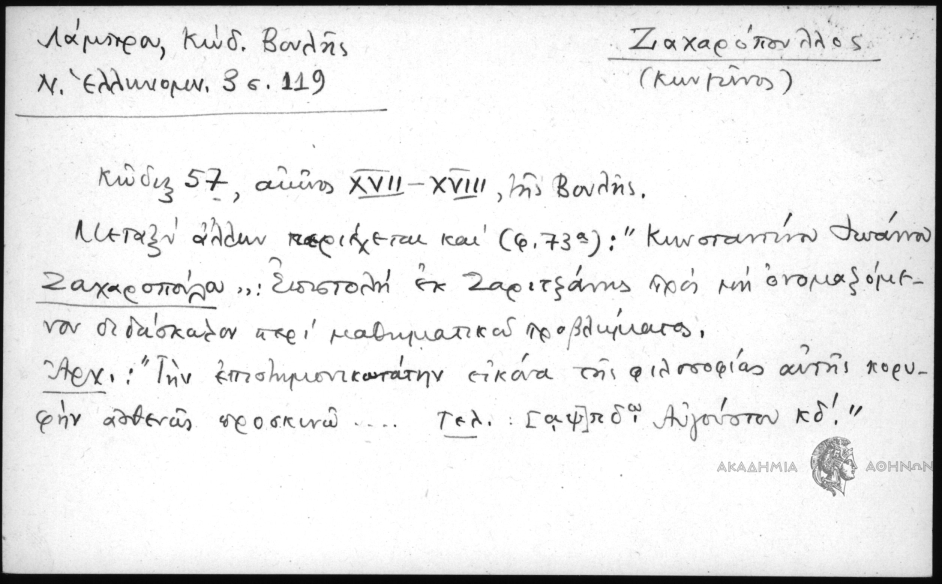 Λάμπρου, Κώδ. Βουλῆς
Ν. Ἑλληνομν. 3 σ. 119
Ζαχαρόπουλλος
(Κων/τῖνος)
Κῶδιξ 57, αἰῶνος XVII–XVIII, τῆς Βουλῆς.
Μεταξὺ ἄλλων περιέχεται καὶ (φ. 73ᵃ): "Κωνσταντίνου Ἰωάννου
Ζαχαροπούλου": Ἐπιστολὴ ἐκ Ζαριτζάνης πρὸς μὴ ὀνομαζόμε-
νον διδάσκαλον περὶ μαθηματικοῦ προβλήματος.
Ἀρχ.: "Τὴν ἐπιστημονικωτάτην εἰκόνα τῆς φιλοσοφίας αὐτῆς κορυ-
φὴν ἀσθενῶς προσκυνῶ .... Τελ. : [αψ]πδῳ Αὐγούστου κδ'."
ΑΚΑΔΗΜΙΑ ΑΘΗΝΩΝ